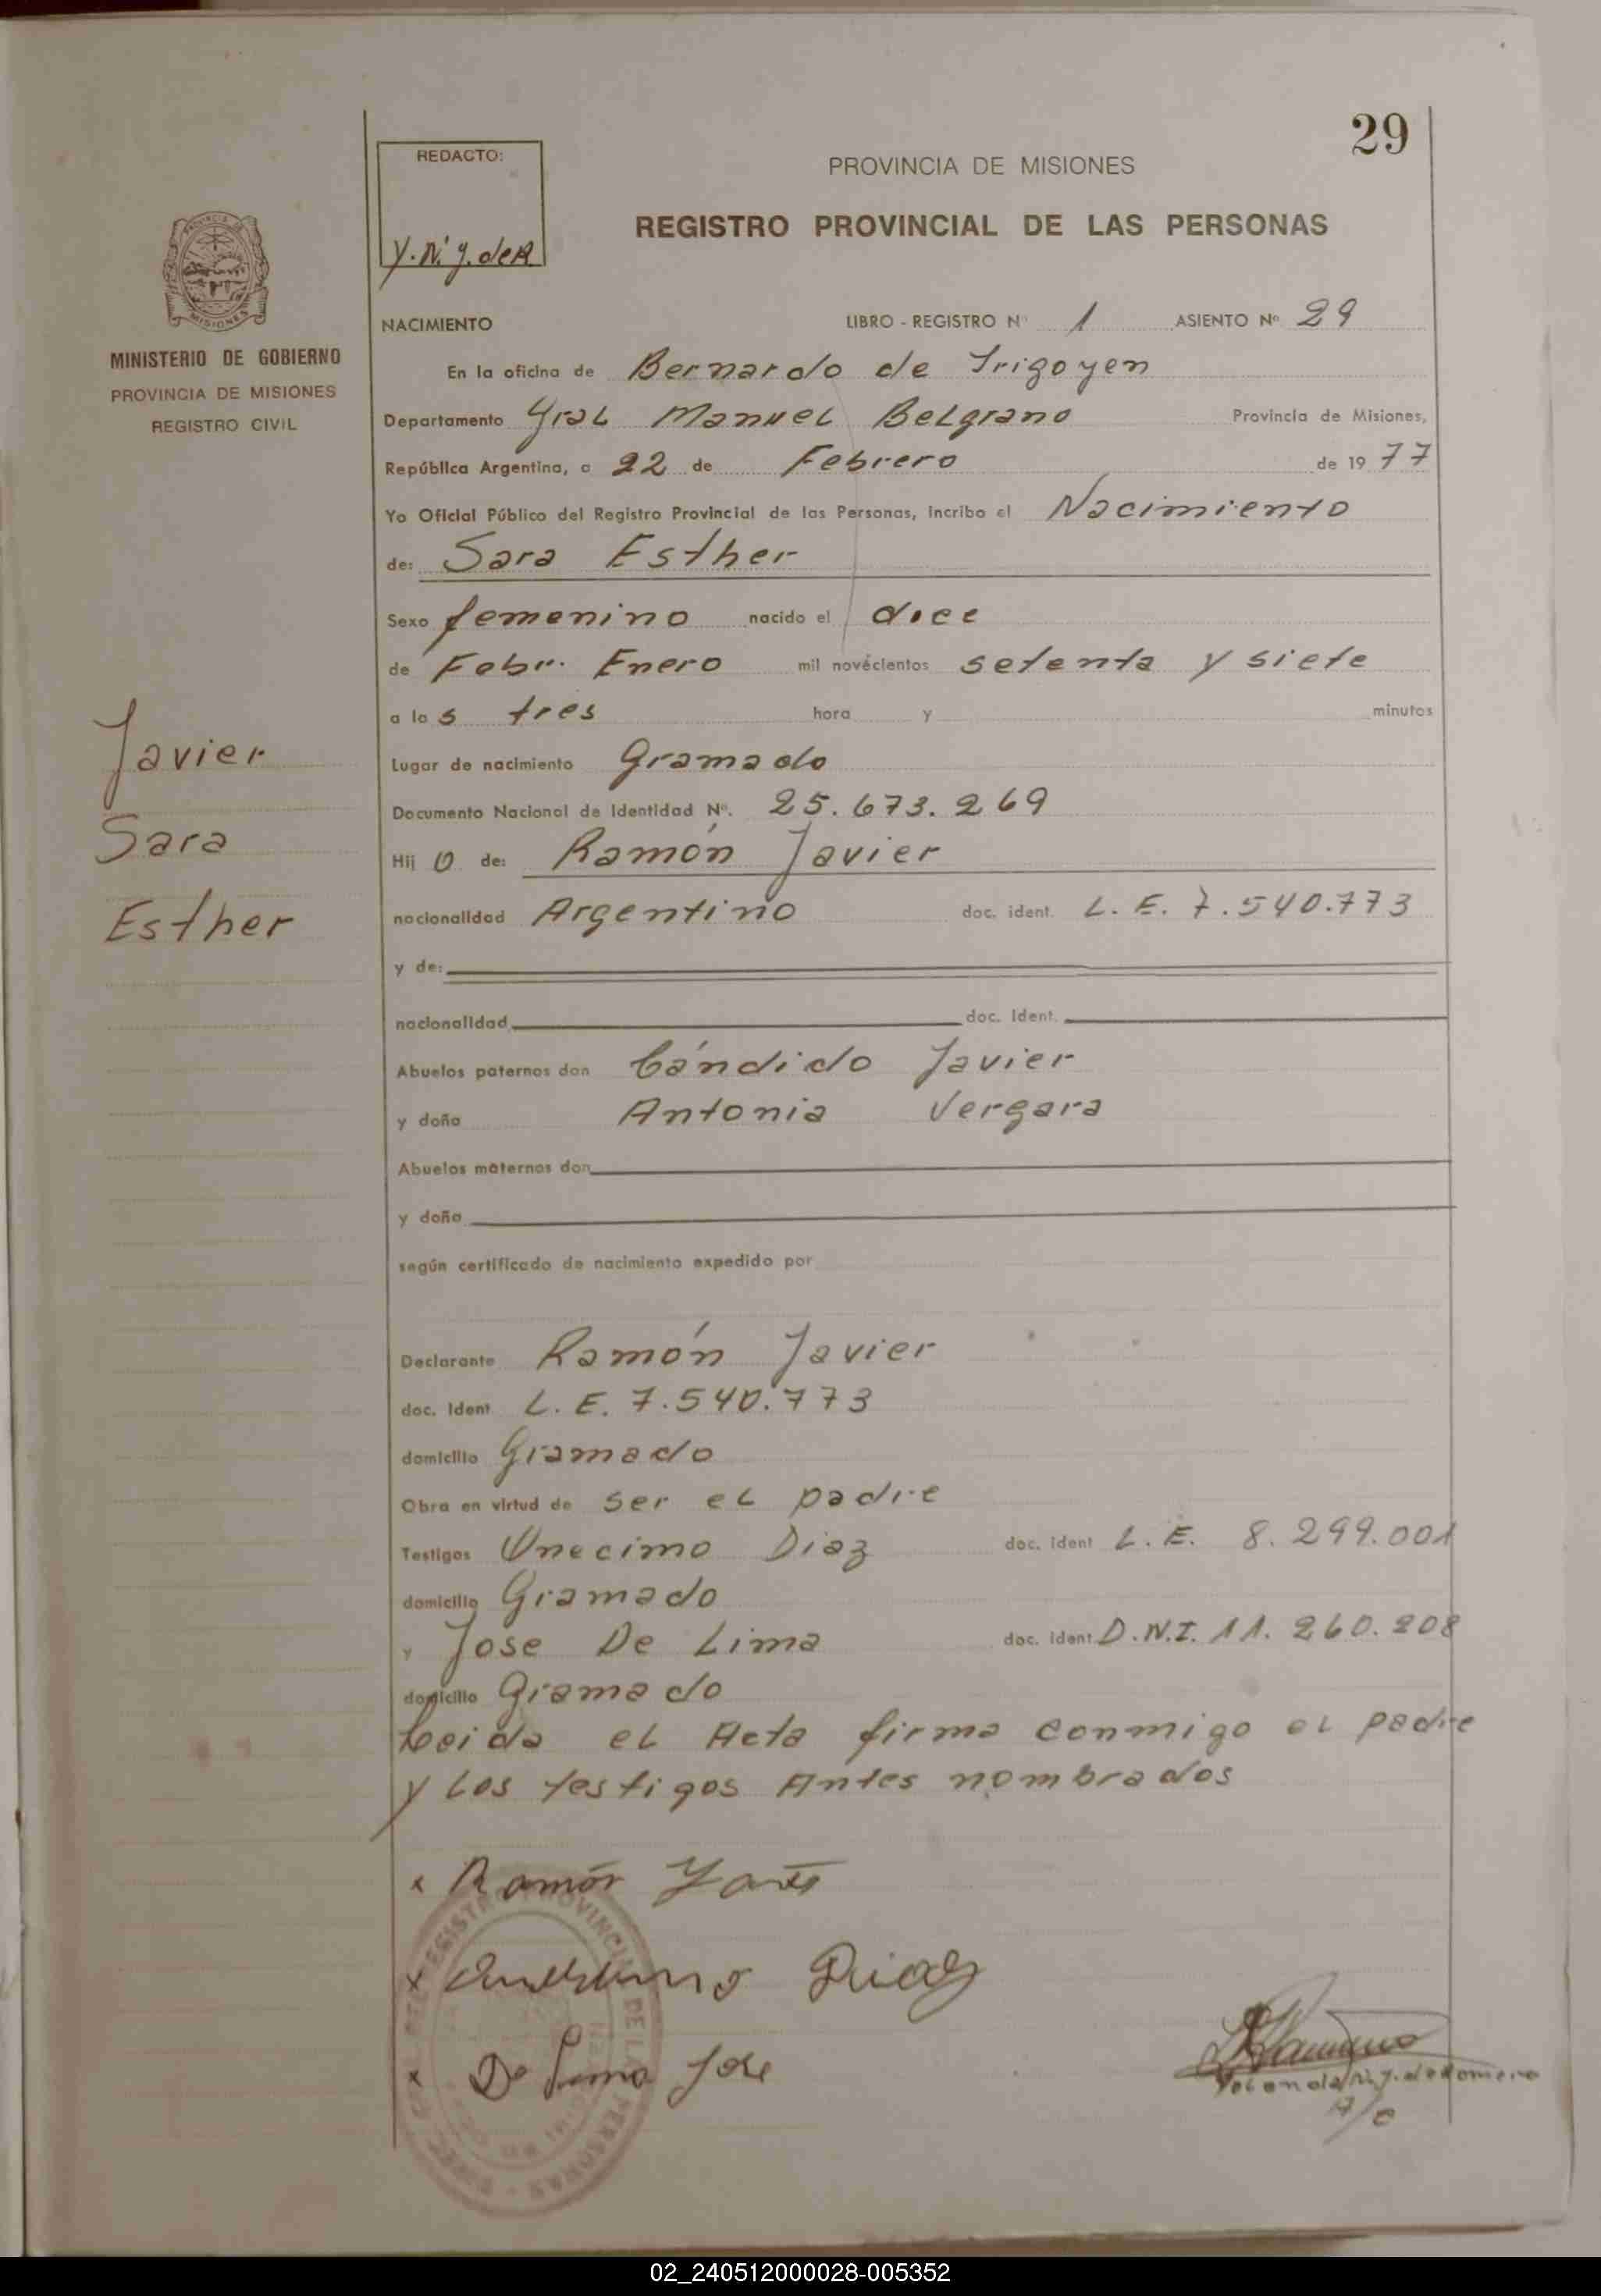 29
REDACTO:
Y.N.J. de R
PROVINCIA DE MISIONES
REGISTRO PROVINCIAL DE LAS PERSONAS
MISIONES
MINISTERIO DE GOBIERNO
PROVINCIA DE MISIONES
REGISTRO CIVIL
NACIMIENTO LIBRO - REGISTRO Nº 1 ASIENTO Nº 29
En la oficina de Bernardo de Irigoyen
Departamento Gral Manuel Belgrano Provincia de Misiones,
República Argentina, a 22 de Febrero de 19 77
Yo Oficial Público del Registro Provincial de las Personas, incribo el Nacimiento
de: Sara Esther
Sexo femenino nacido el doce
de Febr. Enero mil novecientos setenta y siete
a las tres hora y minutos
Lugar de nacimiento Gramado
Documento Nacional de Identidad Nº. 25.673.269
Hij o de: Ramón Javier
nacionalidad Argentino doc. ident. L. E. 7.540.773
y de:
nacionalidad doc. ident.
Abuelos paternos don Cándido Javier
y doña Antonia Vergara
Abuelos maternos don
y doña
según certificado de nacimiento expedido por
Declarante Ramón Javier
doc. ident L. E. 7.540.773
domicilio Gramado
Obra en virtud de ser el padre
Testigos Onecimo Diaz doc. ident L. E. 8.299.001
domicilio Gramado
y Jose De Lima doc. ident. D.N.I. 11.260.208
domicilio Gramado
Leida el Acta firma conmigo el padre
y los testigos Antes nombrados
Javier
Sara
Esther
x Ramón
x Diaz
x De Lima Jose
A/C
02_240512000028-005352